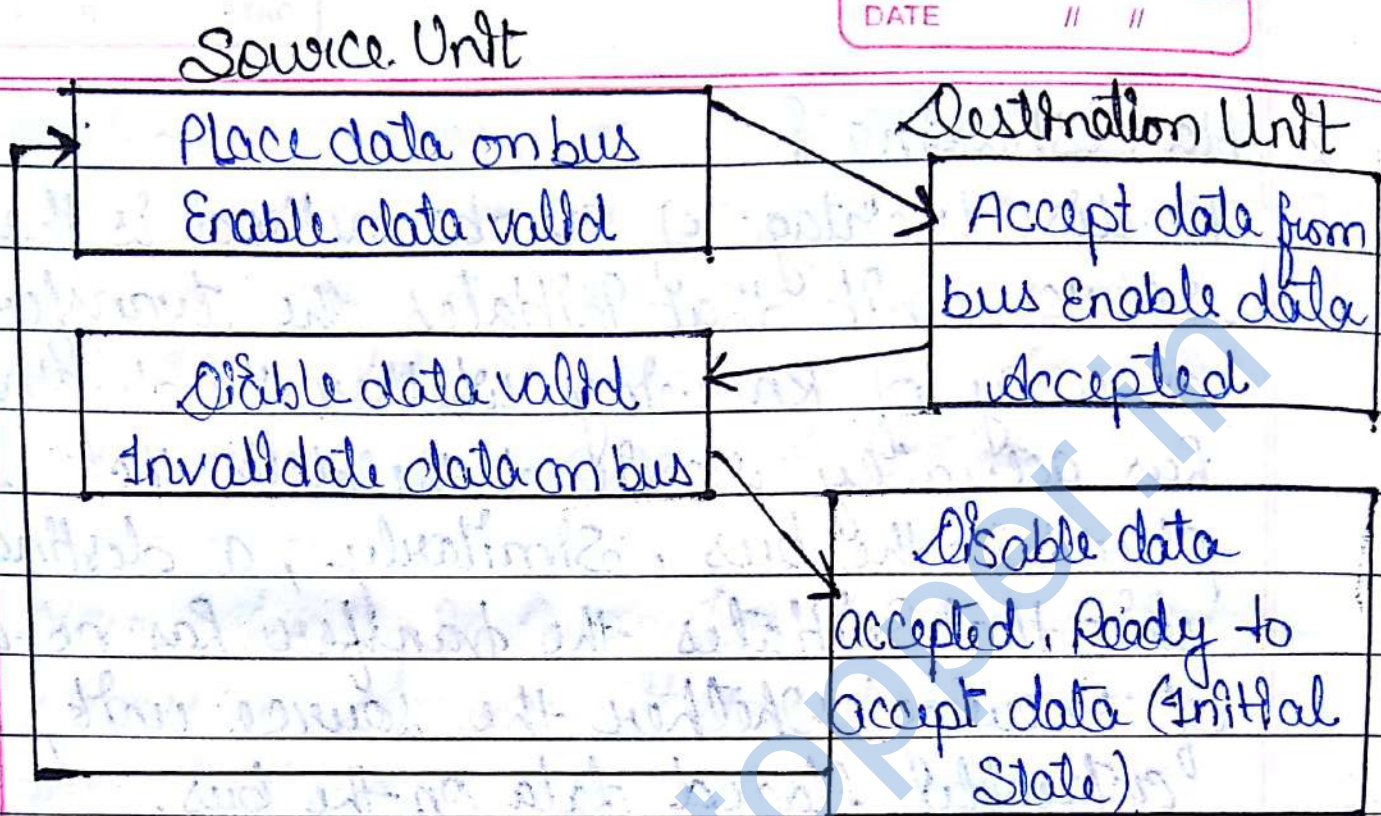 DATE // //
Source Unit
Place data on bus
Enable data valid
Destination Unit
Accept data from
bus Enable data
Accepted
Disable data valid
Invalidate data on bus
Disable data
accepted. Ready to
accept data (Initial
State)